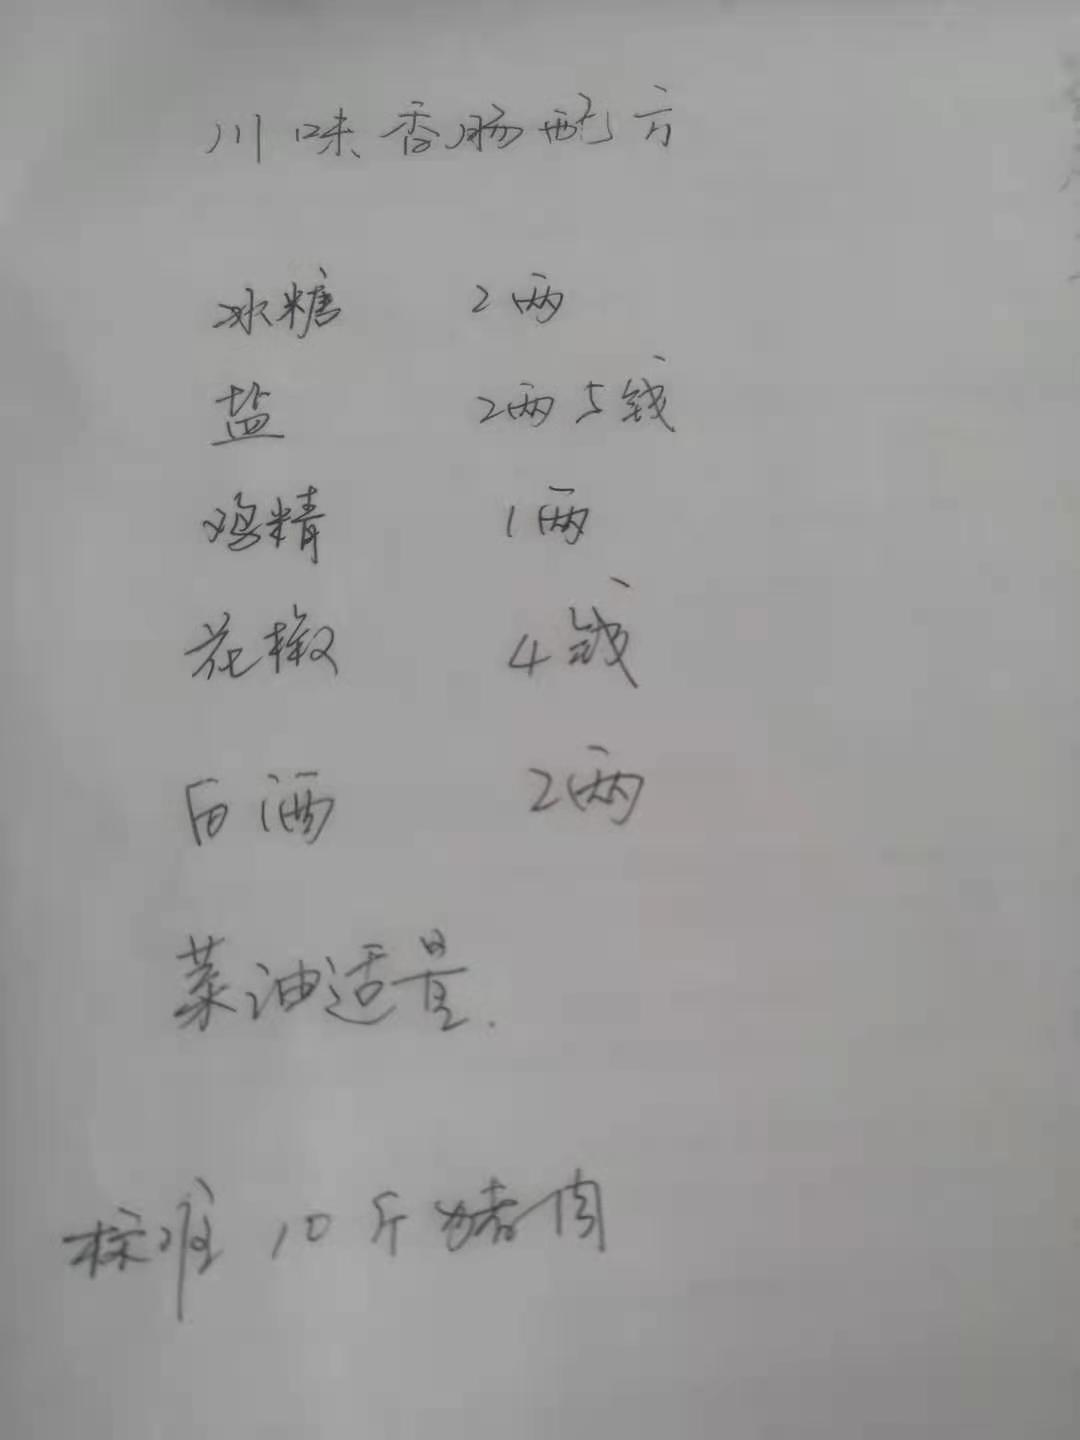 川味香肠配方
冰糖 2两
盐 2两5钱
鸡精 1两
花椒 4钱
白酒 2两
菜油适量.
标准10斤猪肉